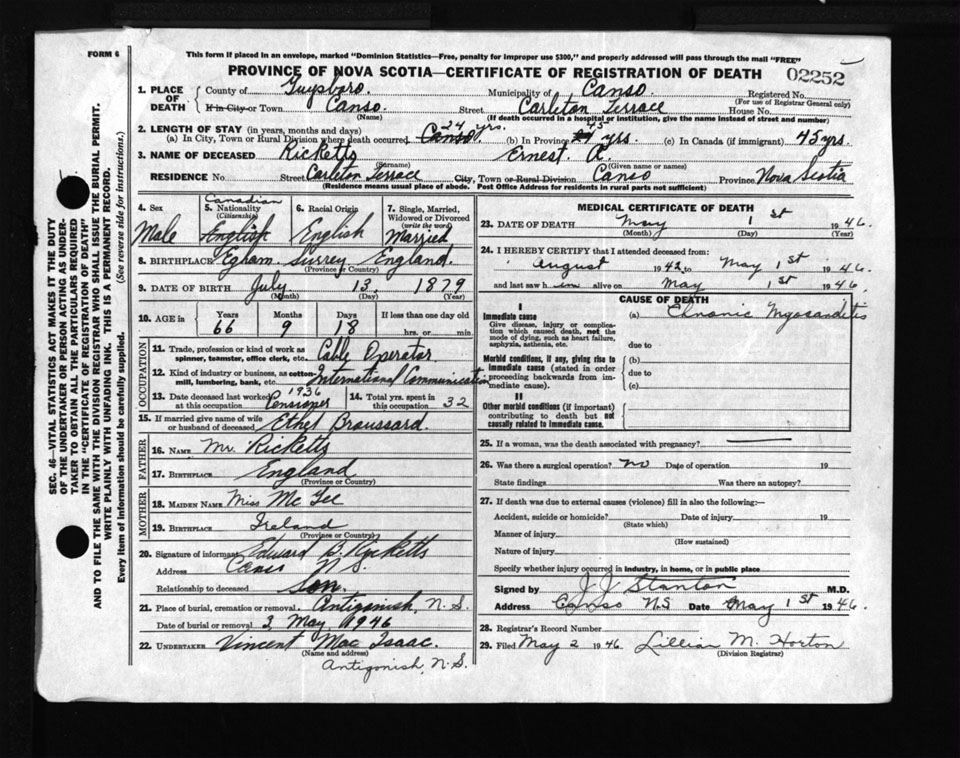 FORM 6
This form if placed in an envelope, marked "Dominion Statistics—Free, penalty for improper use $300," and properly addressed will pass through the mail "FREE"
PROVINCE OF NOVA SCOTIA—CERTIFICATE OF REGISTRATION OF DEATH
02252
1. PLACE OF DEATH
County of Guysboro. Municipality of Canso. Registered No.
(For use of Registrar General only)
If in City or Town Canso. Street Carleton Terrace House No.
(Name) (If death occurred in a hospital or institution, give the name instead of street and number)
2. LENGTH OF STAY (in years, months and days)
(a) In City, Town or Rural Division where death occurred Canso. 24 yrs. (b) In Province 45 yrs. (c) In Canada (if immigrant) 45 yrs.
3. NAME OF DECEASED Ricketts Ernest. A.
(Surname) (Given name or names)
RESIDENCE No. Street Carleton Terrace City, Town or Rural Division Canso Province Nova Scotia
(Residence means usual place of abode. Post Office Address for residents in rural parts not sufficient)
4. Sex Male
5. Nationality (Citizenship) Canadian English
6. Racial Origin English
7. Single, Married, Widowed or Divorced (write the word) Married
8. BIRTHPLACE Egham. Surrey England.
(Province or Country)
9. DATE OF BIRTH July 13. 1879
(Month) (Day) (Year)
10. AGE in Years 66 Months 9 Days 18 If less than one day old hrs. or min.
OCCUPATION
11. Trade, profession or kind of work as spinner, teamster, office clerk, etc. Cable Operator.
12. Kind of industry or business, as cotton-mill, lumbering, bank, etc. International Communication
13. Date deceased last worked at this occupation 1936 Pensioner
14. Total yrs. spent in this occupation 32
15. If married give name of wife or husband of deceased Ethel Broussard.
FATHER
16. NAME Mr. Ricketts
17. BIRTHPLACE England
(Province or Country)
MOTHER
18. MAIDEN NAME Miss Mc Gee
19. BIRTHPLACE Ireland
(Province or Country)
20. Signature of informant Edward B. Ricketts
Address Canso N.S.
Relationship to deceased Son.
21. Place of burial, cremation or removal. Antigonish, N.S.
Date of burial or removal 3 May 1946
22. UNDERTAKER Vincent Mac Isaac.
(Name and address)
Antigonish, N.S.
MEDICAL CERTIFICATE OF DEATH
23. DATE OF DEATH May 1st 1946
(Month) (Day) (Year)
24. I HEREBY CERTIFY that I attended deceased from:
August 1942 to May 1st 1946.
and last saw him alive on May 1st 1946.
CAUSE OF DEATH
I
Immediate cause
Give disease, injury or complication which caused death, not the mode of dying, such as heart failure, asphyxia, asthenia, etc.
(a) Chronic Myocarditis
due to
Morbid conditions, if any, giving rise to immediate cause (stated in order proceeding backwards from immediate cause).
(b)
due to
(c)
II
Other morbid conditions (if important) contributing to death but not causally related to immediate cause.
25. If a woman, was the death associated with pregnancy?
26. Was there a surgical operation? No Date of operation 19
State findings Was there an autopsy?
27. If death was due to external causes (violence) fill in also the following:—
Accident, suicide or homicide? Date of injury 19
(State which)
Manner of injury
(How sustained)
Nature of injury
Specify whether injury occurred in industry, in home, or in public place
Signed by J. J. Stanton M.D.
Address Canso N.S Date May 1st 1946.
28. Registrar's Record Number
29. Filed May 2 1946. Lillian M. Horton
(Division Registrar)
SEC. 46—VITAL STATISTICS ACT MAKES IT THE DUTY
OF THE UNDERTAKER OR PERSON ACTING AS UNDER-
TAKER TO OBTAIN ALL THE PARTICULARS REQUIRED
IN THE "CERTIFICATE OF REGISTRATION OF DEATH"
AND TO FILE THE SAME WITH THE DIVISION REGISTRAR WHO SHALL ISSUE THE BURIAL PERMIT.
WRITE PLAINLY WITH UNFADING INK. THIS IS A PERMANENT RECORD.
Every item of information should be carefully supplied. (See reverse side for instructions.)